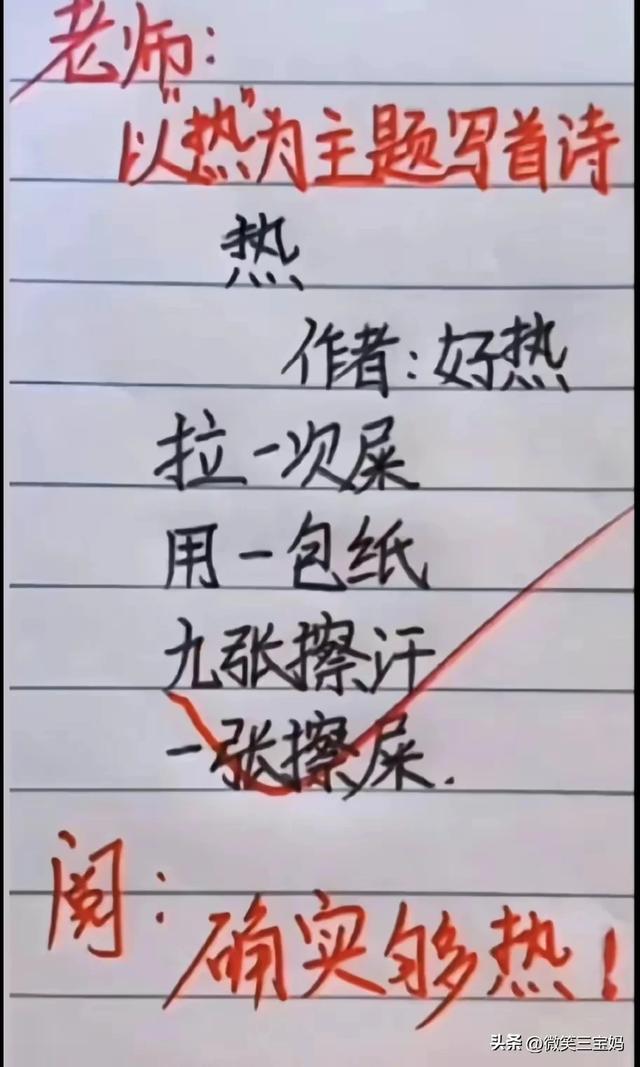 老师:
以"热"为主题写首诗
热
作者:好热
拉一次屎
用一包纸
九张擦汗
一张擦屎.
阅:
确实够热!
头条 @微笑三宝妈